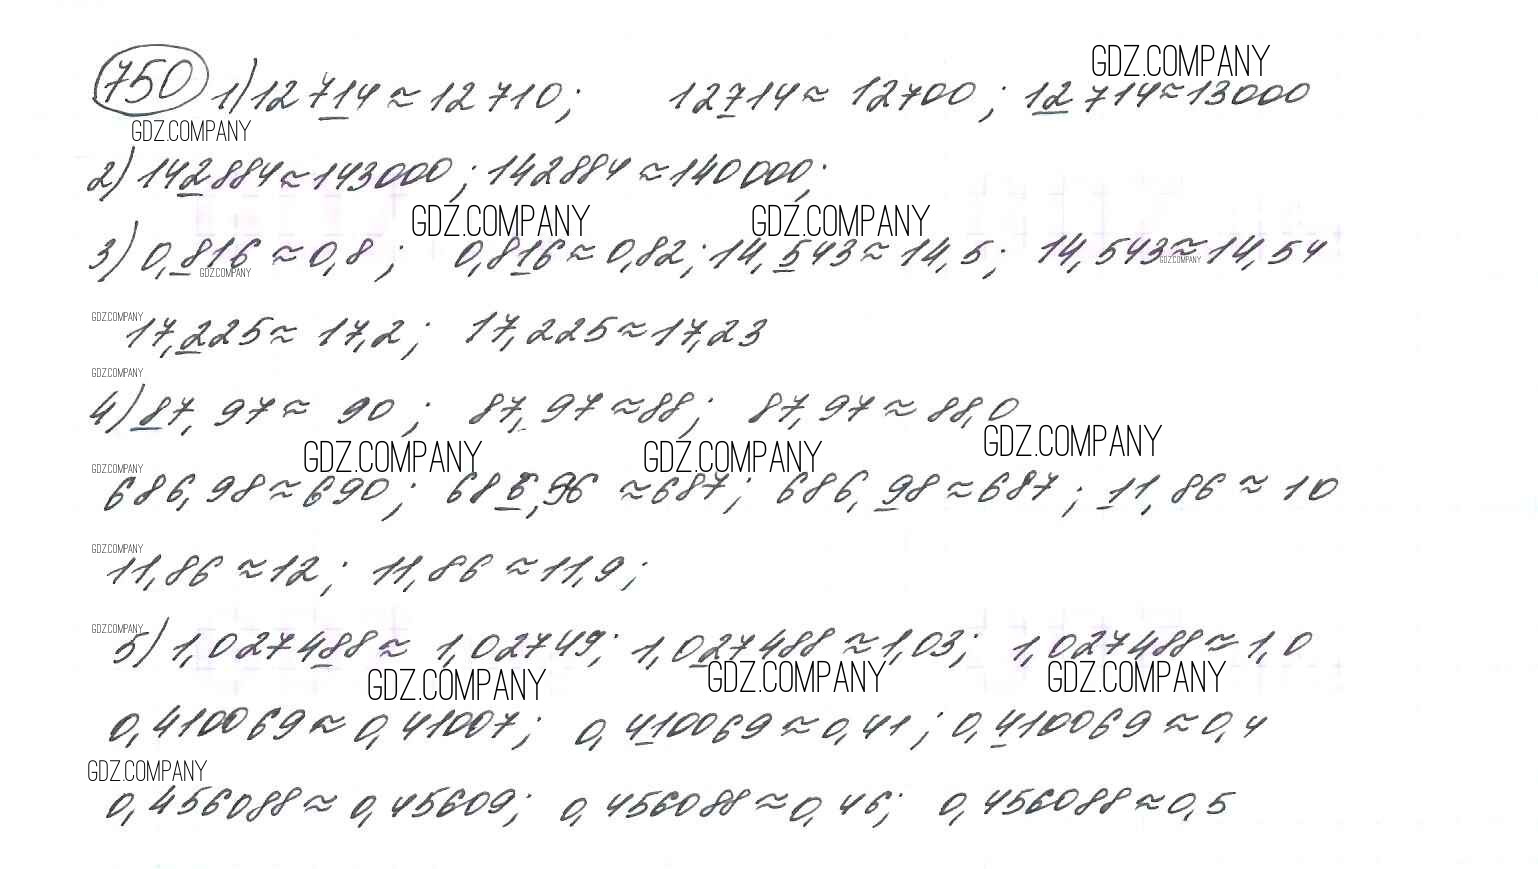 GDZ.COMPANY
750 1) 12714 ≈ 12710; 12714 ≈ 12700; 12714 ≈ 13000
GDZ.COMPANY
2) 142884 ≈ 143000; 142884 ≈ 140000;
GDZ.COMPANY GDZ.COMPANY
3) 0,816 ≈ 0,8; 0,816 ≈ 0,82; 14,543 ≈ 14,5; 14,543 ≈ 14,54
GDZ.COMPANY GDZ.COMPANY
GDZ.COMPANY
17,225 ≈ 17,2; 17,225 ≈ 17,23
GDZ.COMPANY
4) 87,97 ≈ 90; 87,97 ≈ 88; 87,97 ≈ 88,0
GDZ.COMPANY GDZ.COMPANY GDZ.COMPANY
GDZ.COMPANY
686,98 ≈ 690; 686,96 ≈ 687; 686,98 ≈ 687; 11,86 ≈ 10
GDZ.COMPANY
11,86 ≈ 12; 11,86 ≈ 11,9;
GDZ.COMPANY
5) 1,027488 ≈ 1,02749; 1,027488 ≈ 1,03; 1,027488 ≈ 1,0
GDZ.COMPANY GDZ.COMPANY GDZ.COMPANY
0,410069 ≈ 0,41007; 0,410069 ≈ 0,41; 0,410069 ≈ 0,4
GDZ.COMPANY
0,456088 ≈ 0,45609; 0,456088 ≈ 0,46; 0,456088 ≈ 0,5